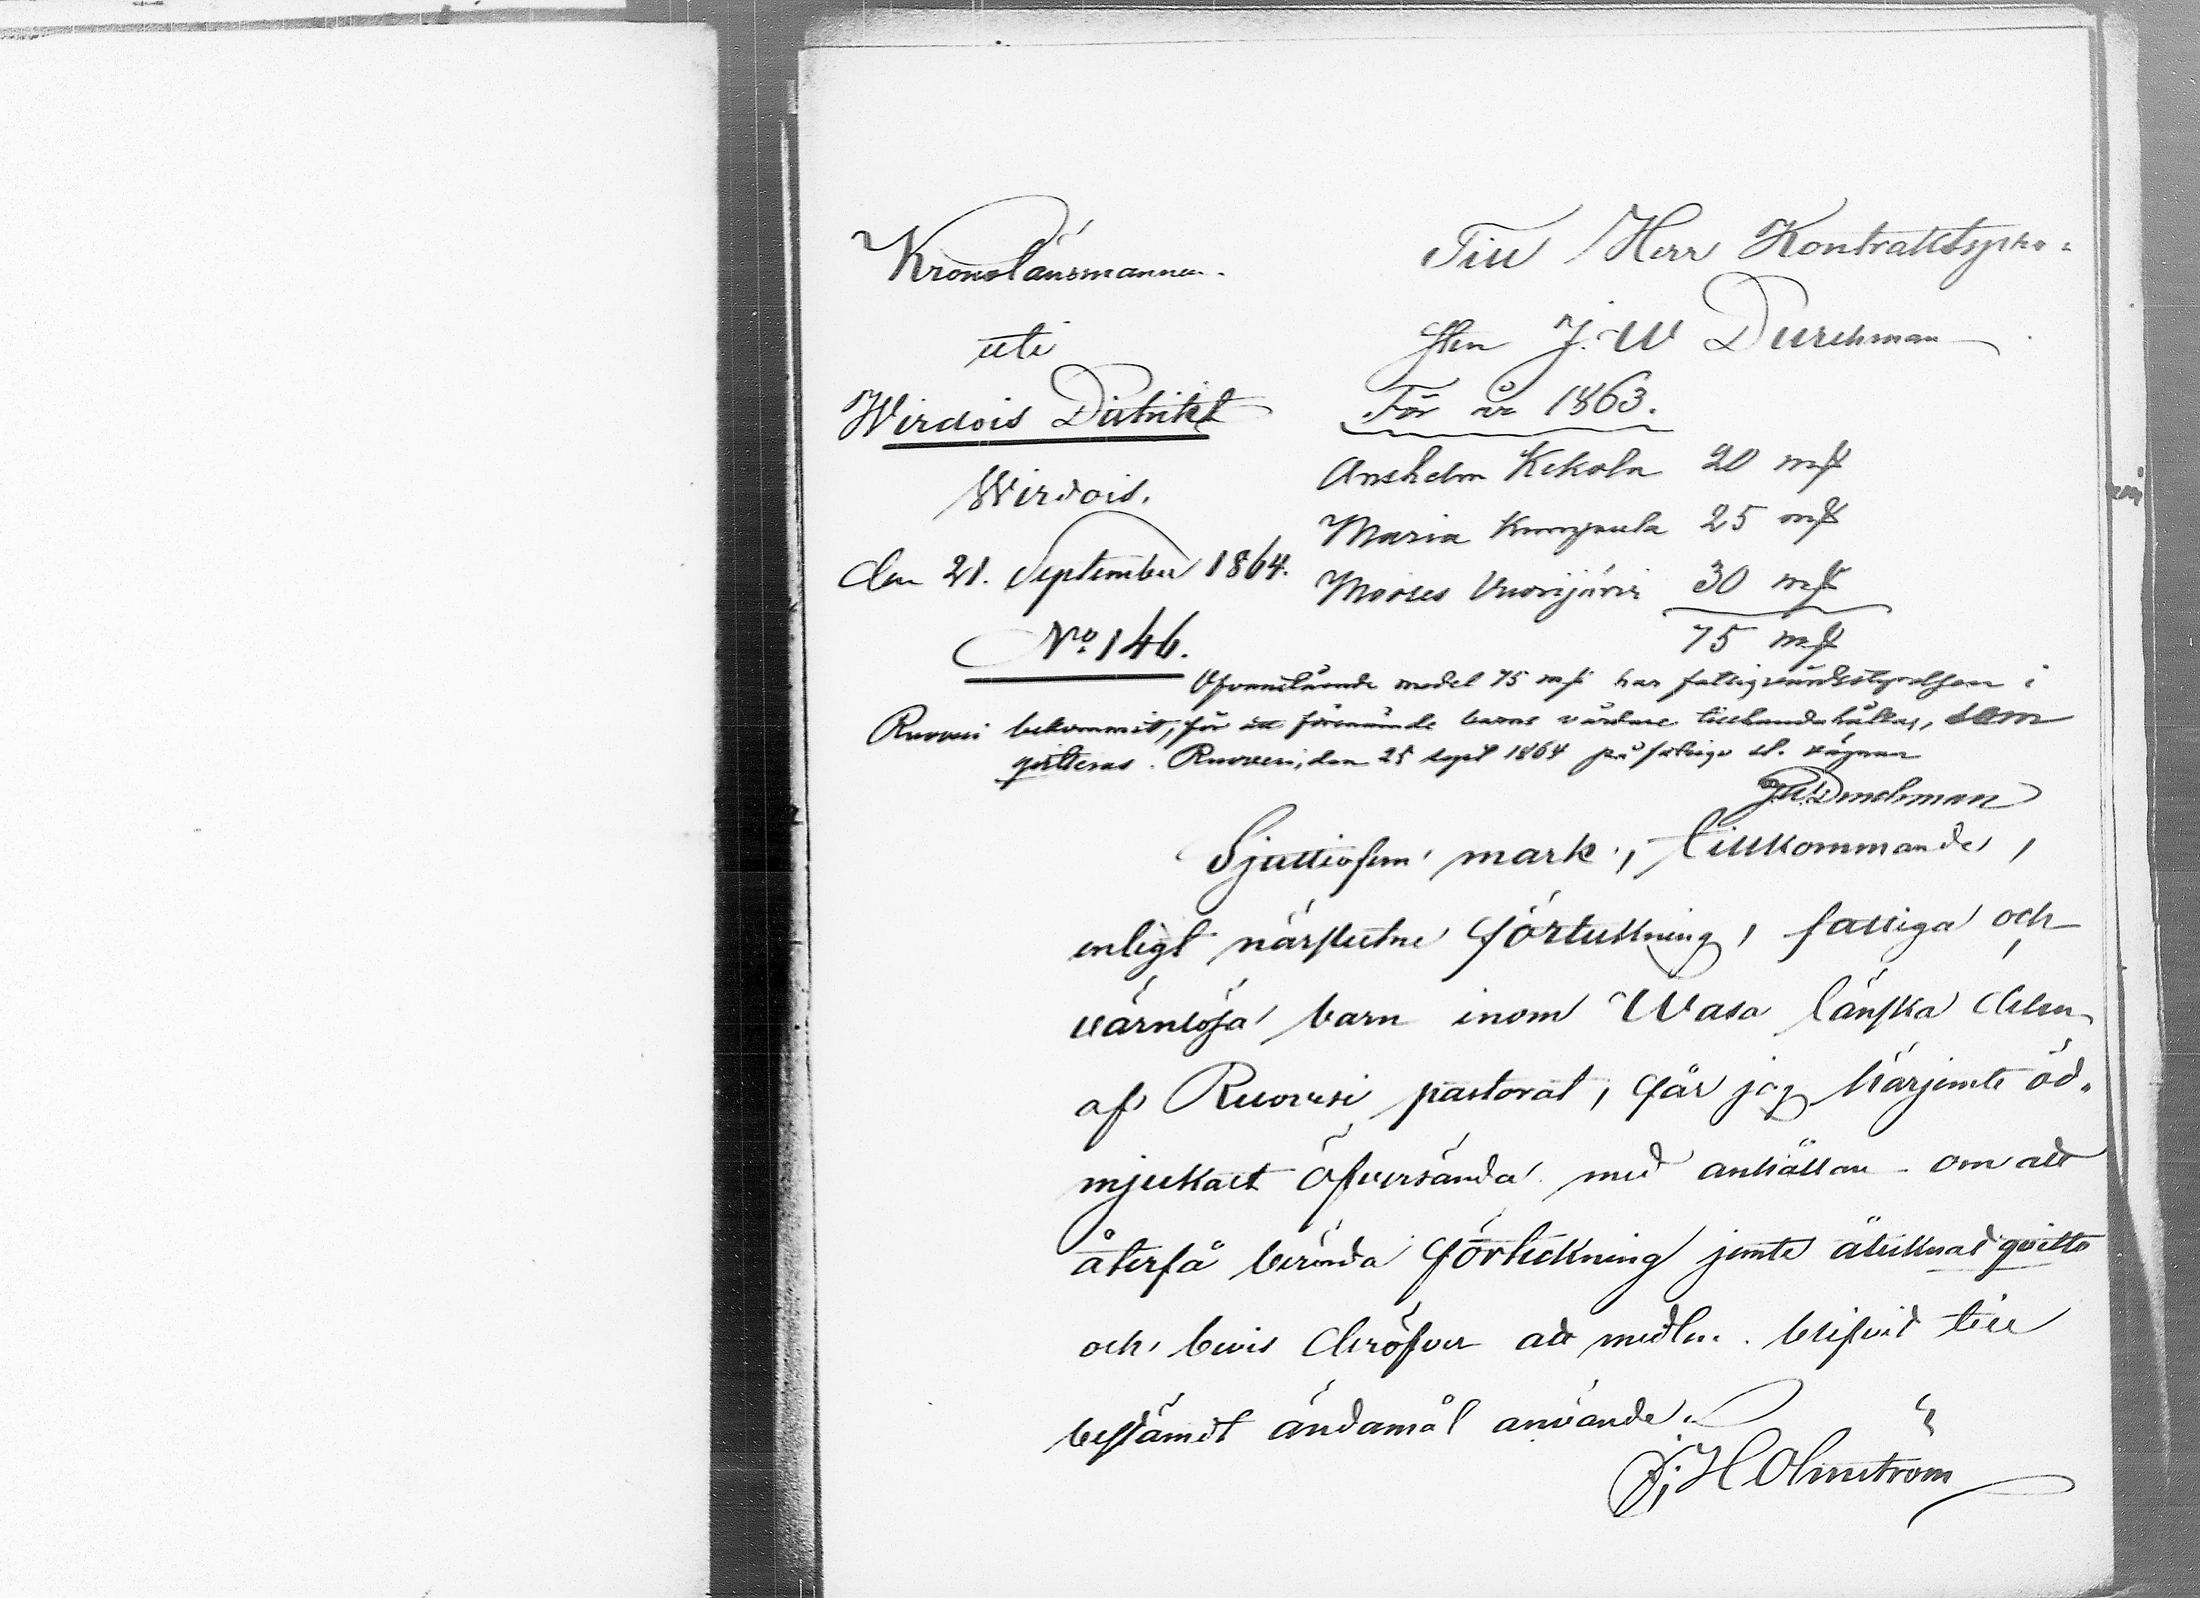 Kronolänsmannen
uti
Wirdois Distrikt
Wirdois.
den 21. September 1864.
No 146.
Till Herr Kontraktspro-
sten J. W Durchman
För år 1863.
Anshelm Kekola 20 mk
Maria 25 mk
Moises Vuorijärvi 30 mk
75 mk
Ofvanstående medel 75 mk har fattigvårdsstyrelsen i
Ruovesi bekommit, för att förenämde barns vårdare tillhandahållas, som
qvitteras. Ruovesi, den 25 sept 1864 på fattigv. st. vägnar
J.W. Durchman
Sjuttiofem mark, tillkommande,
enligt närslutne förteckning, fattiga och
värnlösa barn inom Wasa länska delen
af Ruovesi pastorat, får jag härjemte öd-
mjukast öfversända med anhållan om att
återfå berörda förteckning jemte åtecknad qvitto
och bevis deröfver att medlen blifvit till
bestämdt ändamål använde.
J: H Olmström